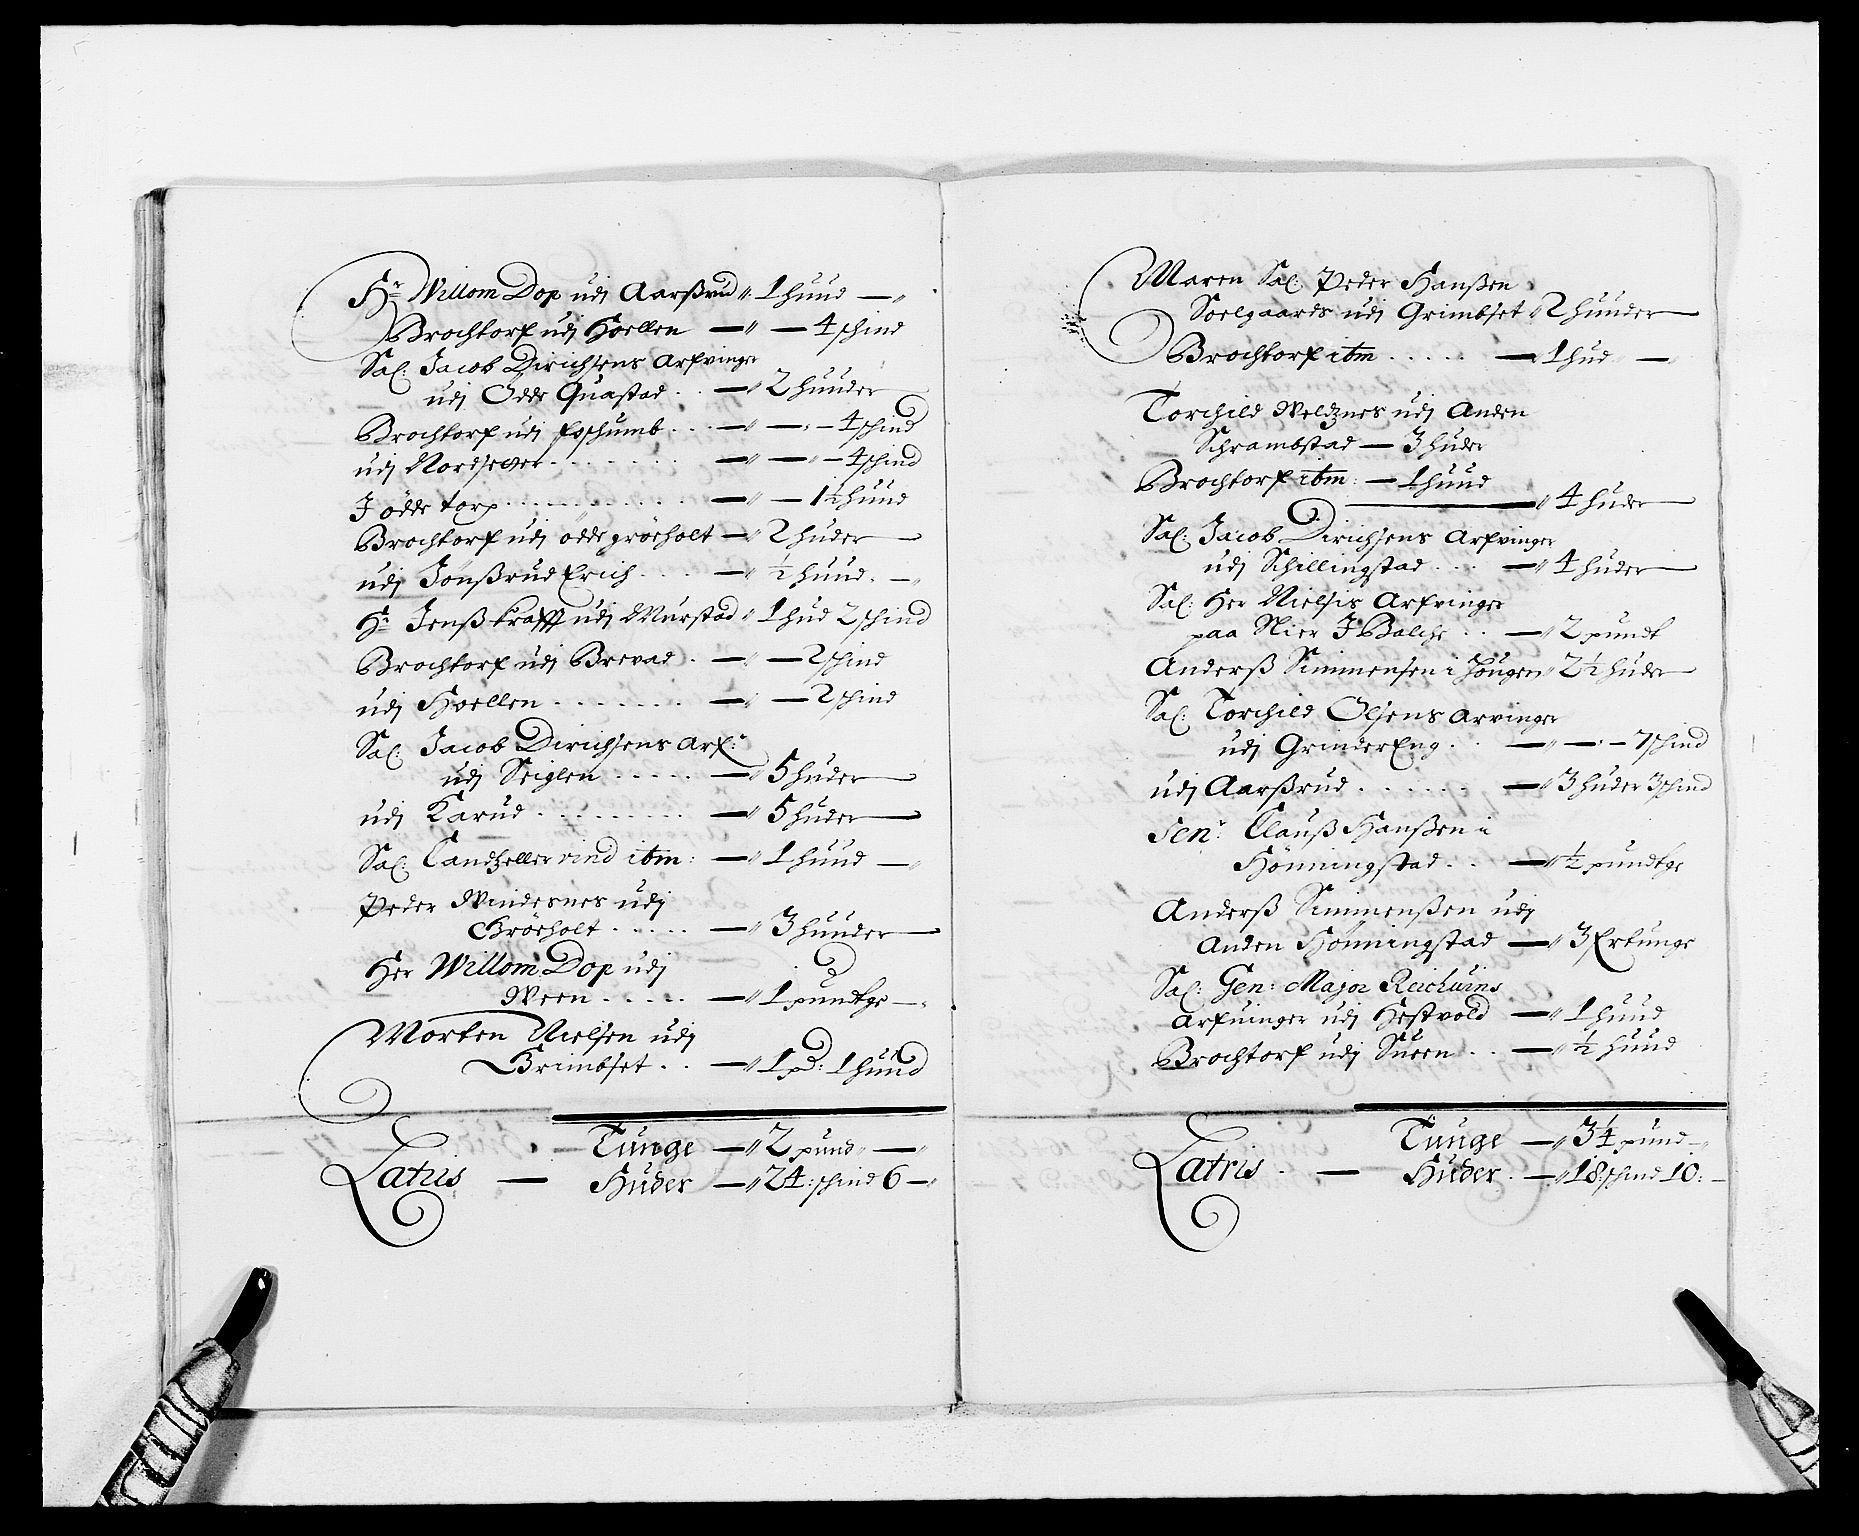 Hr Willom Dop udj Aarßrud " 1 huud — "
Brochtorf udj Hoellen — " — 4 schind
Sal: Jacob Dirichsens Arfvinger
udj Odde Quastad . . — " 2 huuder
Brochtorf udj Esschumb . . . — " — " — 4 schind
udj Nordseger . . . . . . — " — " — 4 schind
J ödde torp . . . . . . . — " — 1½ huud
Brochtorf udj odde gröeholt — " 2 huder —
udj Jönßrud Erich . . . — " ½ huud . — "
Hr Jenß krafft udj Murstad " 1 hud 2 schind
Brochtorf udj Brevad . — " — 2 schind
udj Hoellen . . . . . . . — " — 2 schind
Sal: Jacob Dirichsens Arf:
udj Seiglen . . . . . — " 5 huder —
udj Karud . . . . . . . . — " 5 huder —
Sal: Candzeller vind itm : — " 1 huud — "
Peder Windesnes udj
Gröeholt . . . . . — " 3 huuder —
Her Willom Dop udj
Ween . . . . . — " 1 pundtge — "
Morten Nielsen udj
Grimbset . . — " 1 pd: 1 huud
Tunge — " 2 pund " — "
Latris — Huder — " 24: schind 6 — "
Maren Sal: Peder Hanßen
Soelgaards udj Grimbset " 2 huuder —
Brochtorf itm . . . . . — " 1 hud — "
Torchild Weldznes udj Anden
Schrambstad — 3 huder
Brochtorf itm : — 1 huud
— " 4 huder —
Sal: Jacob Dirichsens Arfvinger
udj Schillingstad . . . — " 4 huder —
Sal: Her Nielsis Arfvinger
paa Nier J Balche . . — " 2 pundt
Anderß Simmensen i Hougen " 2½ huder —
Sal: Torchild Olsens Arvinger
udj GrinderEng . . — " — " — 7 schind
udj Aarßrud . . . . . . — " 3 huder 3 schind
Senr: Clauß Hanßen i
Hönningstad . . . — " ½ pundtge
Anderß Simmenßen udj
Anden Hönningstad — " 3 Ertunge
Sal: Gen: Major Reichuins
Arfuinger udj Hestvold — " 1 huud
Brochtorf udj Sueen . . — " ½ huud
Tunge — " 3¼ pund — "
Latris . — Huder . — " 18: schind 10: —